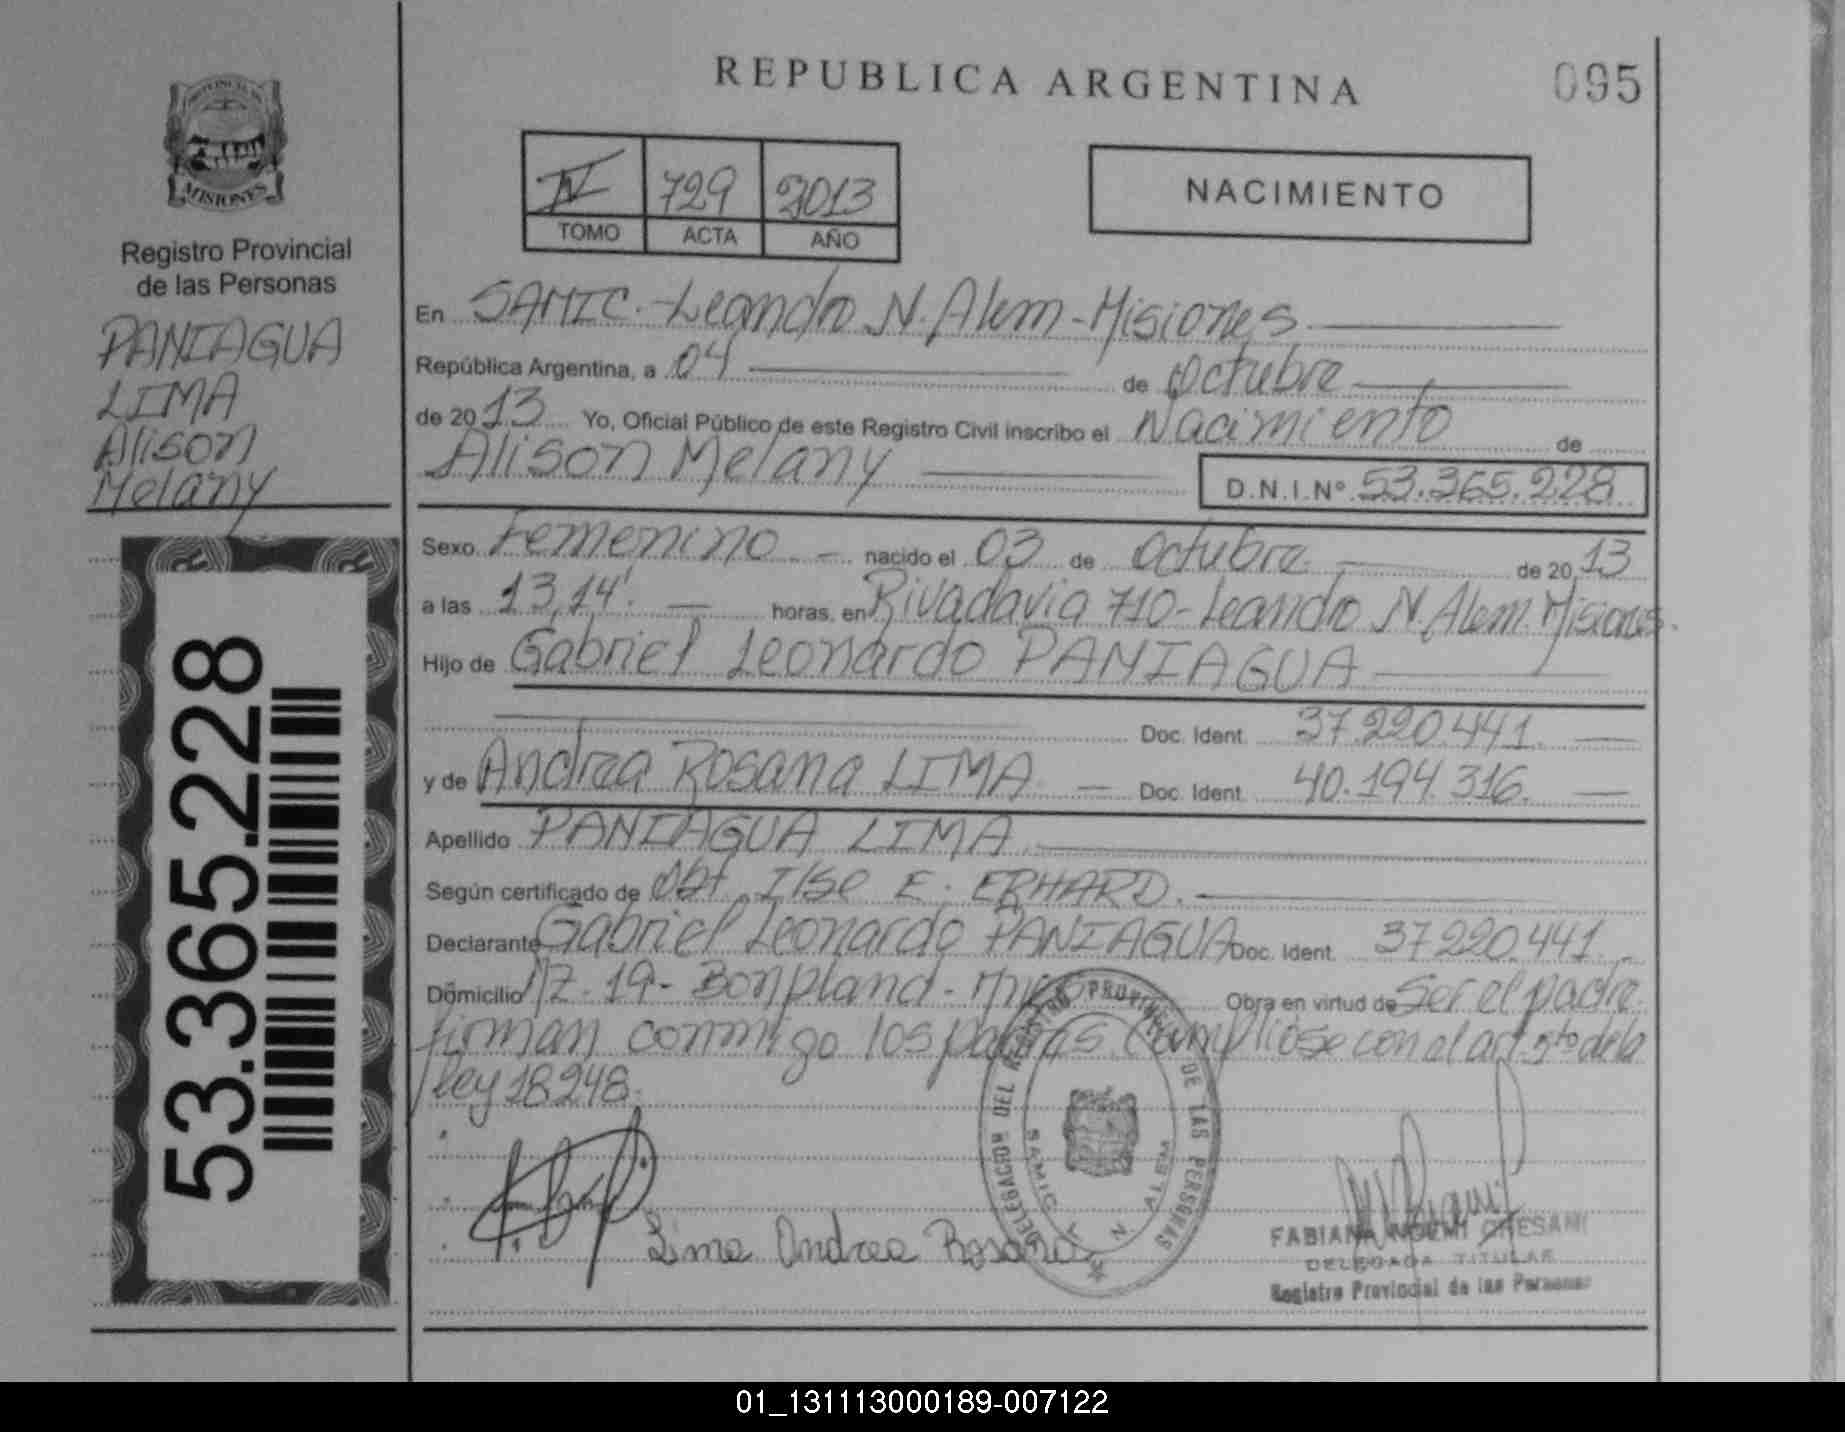 REPUBLICA ARGENTINA
095
PROVINCIA DE
MISIONES
Registro Provincial
de las Personas
PANIAGUA
LIMA
Alison
Melany
53.365.228
IV 729 2013
TOMO ACTA AÑO
NACIMIENTO
En SAMIC.-Leandro N. Alem-Misiones.
República Argentina, a 04 de Octubre
de 2013 Yo, Oficial Público de este Registro Civil inscribo el Nacimiento de
Alison Melany D.N.I.Nº 53.365.228
Sexo Femenino nacido el 03 de Octubre de 2013
a las 13,14'. horas, en Rivadavia 710-Leandro N. Alem. Misiones.
Hijo de Gabriel Leonardo PANIAGUA
Doc. Ident. 37.220.441.
y de Andrea Rosana LIMA Doc. Ident. 40.194.316.
Apellido PANIAGUA LIMA
Según certificado de Obt. Ilse E. ERHARD.
Declarante Gabriel Leonardo PANIAGUA Doc. Ident. 37220.441.
Domicilio Mz. 19- Bonpland- Obra en virtud de Ser el padre.
firman conmigo los padres. Cumpliose con el art. 5to de la
Ley 18248.
Lima Andrea Rosana
DELEGACION DEL REGISTRO PROVINCIAL DE LAS PERSONAS
SAMIC L N ALEM
FABIANA NOEMI
DELEGADA TITULAR
Registro Provincial de las Personas
01_131113000189-007122